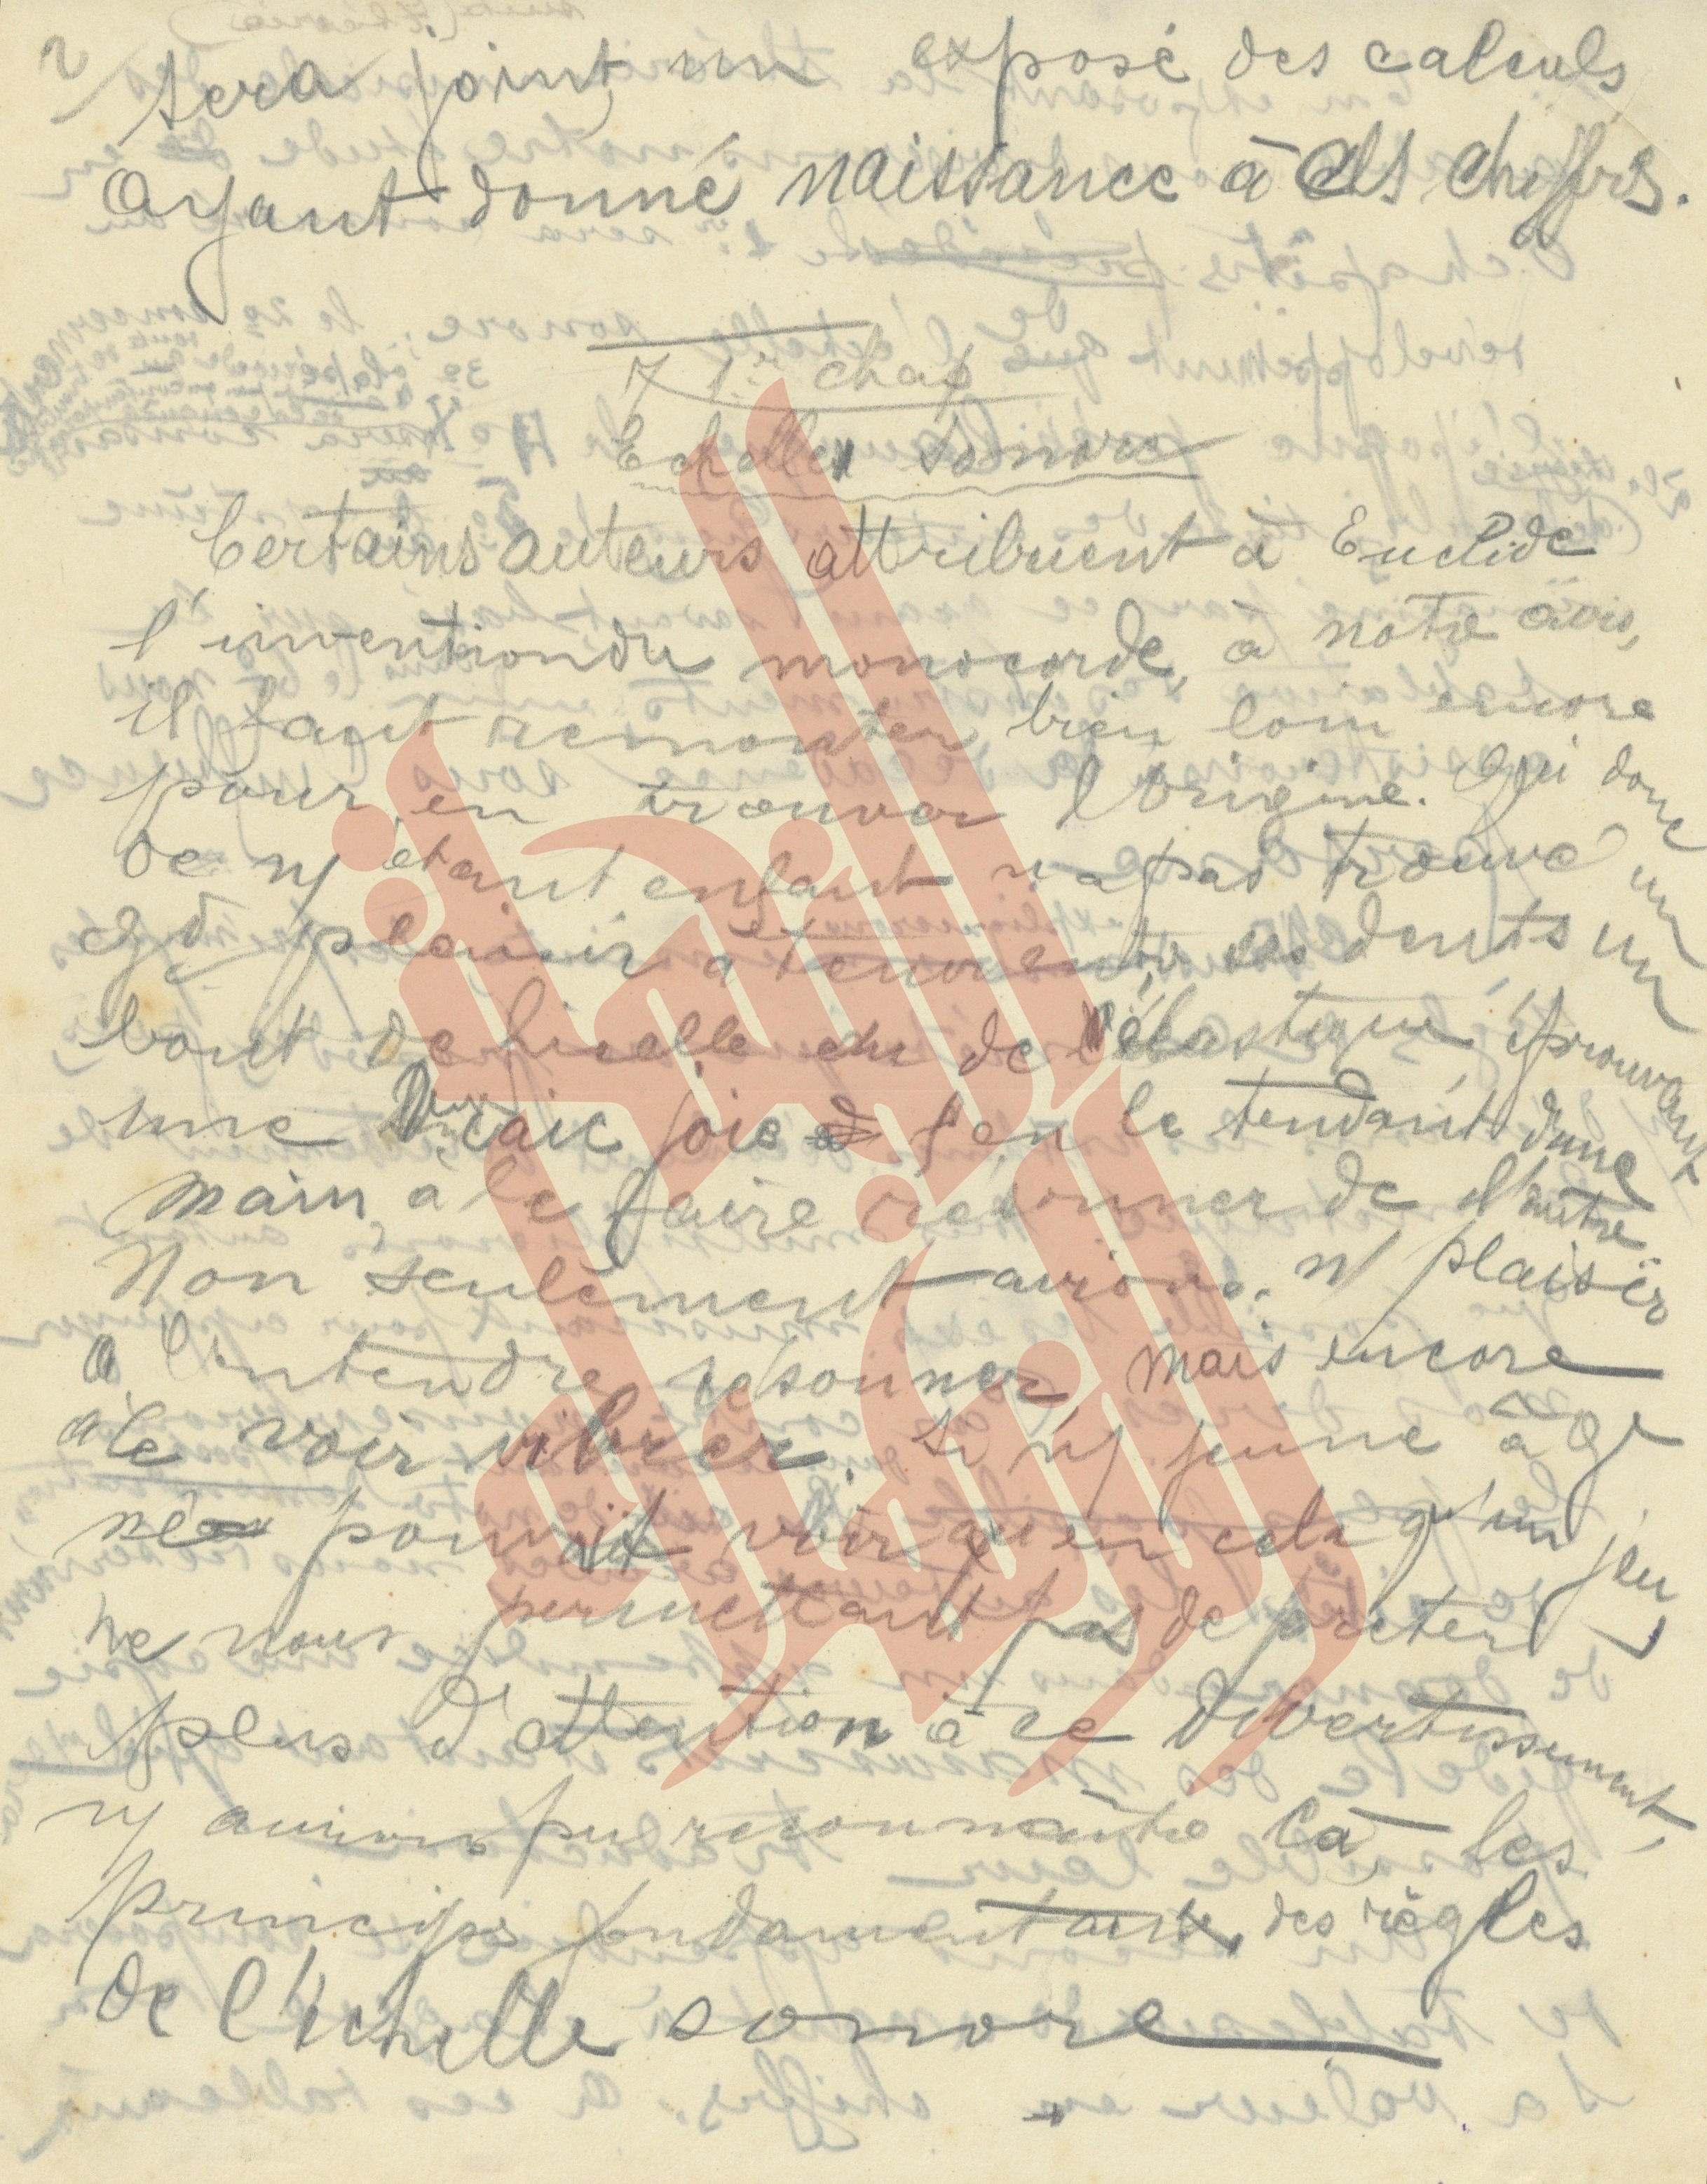 2/ sera joint, un exposé des calculs
ayant donné naissance à ces chiffres.
1er chap
Echelle sonore
Certains auteurs attribuent à Euclide
l'invention du monocorde, à notre avis,
il faut remonter bien loin encore
pour en trouver l'origine. Qui donc
de n/ étant enfant n'a pas trouvé un
gd plaisir à tenir entre ses dents un
bout de ficelle ou de élastique éprouvant
une vraie joie en le tendant d'une
main, à le faire résonner de l'autre.
Non seulement avions n/ plaisir
à l'entendre résonner, mais encore
à le voir vibrer. Si n/ jeune âge
ne pouvait voir en cela qu'un jeu,
ne nous permettant pas de prêter
plus d'attention à ce divertissement,
n/ aurions pu reconnaître là les
principes fondamentaux des règles
de l'échelle sonore